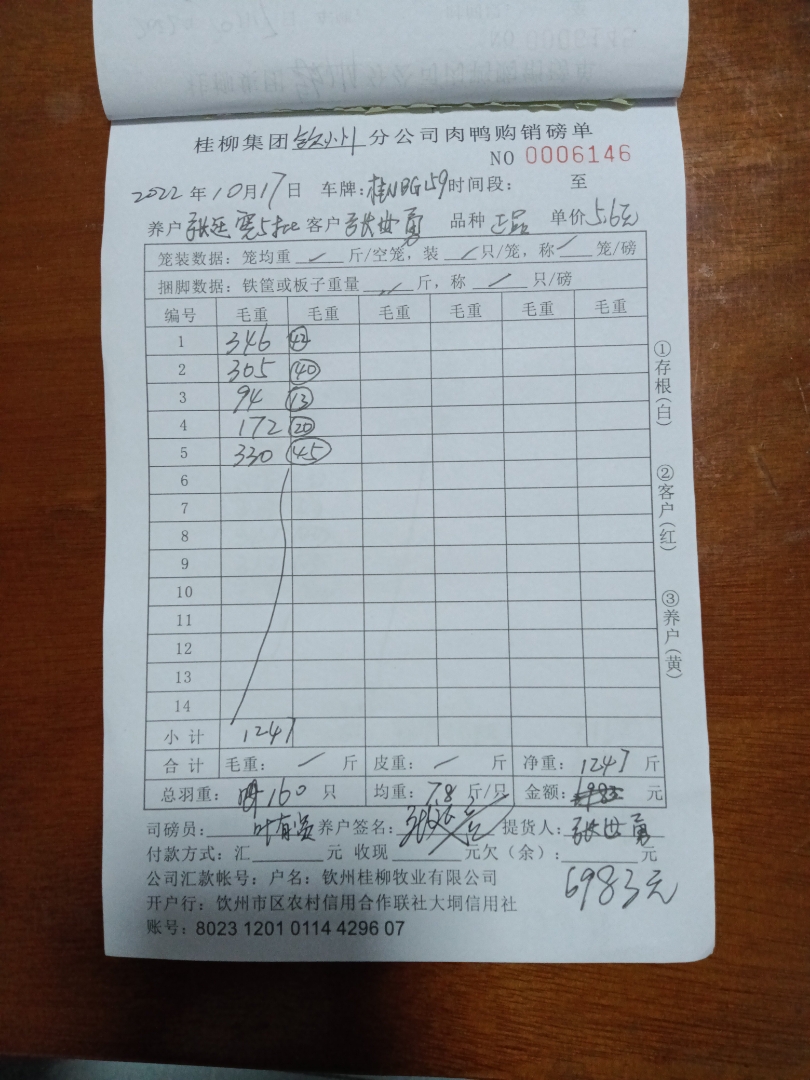 桂柳集团钦州分公司肉鸭购销磅单
NO 0006146
2022年10月17日 车牌：桂N 时间段： 至
养户 张廷宽5批 客户 张世勇 品种 正品 单价 5.6元
笼装数据：笼均重 斤/空笼，装 只/笼，称 笼/磅
捆脚数据：铁筐或板子重量 斤，称 只/磅
编号 毛重 毛重 毛重 毛重 毛重 毛重
1 346 42
2 305 40
3 94 13
4 172 20
5 330 45
6
7
8
9
10
11
12
13
14
小计 1247
合计 毛重： 斤 皮重： 斤 净重：1247斤
总羽重： 160只 均重：7.8斤/只 金额： 元
司磅员： 养户签名： 提货人：张世勇
付款方式：汇 元 收现 元欠（余）： 元
公司汇款帐号：户名：钦州桂柳牧业有限公司
6983元
开户行：饮州市区农村信用合作联社大垌信用社
账号：8023 1201 0114 4296 07
①存根（白）
②客户（红）
③养户（黄）